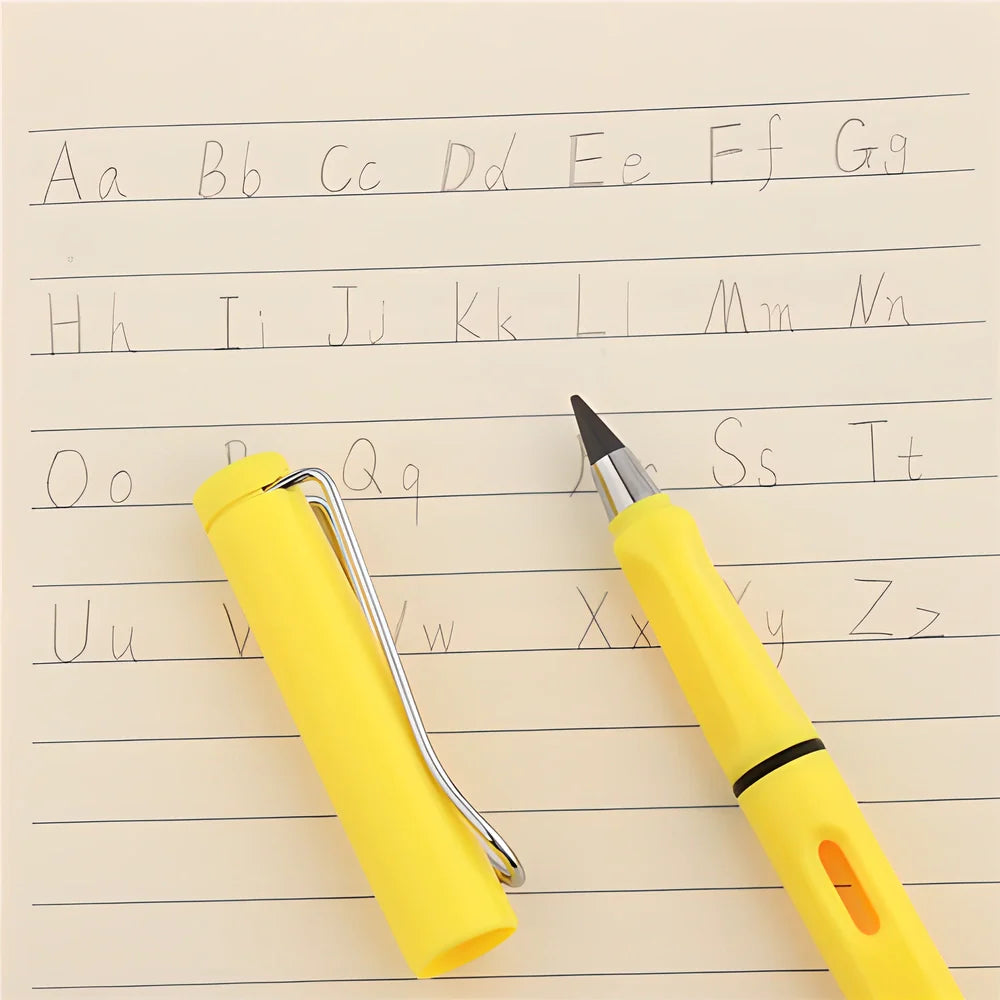 Aa Bb Cc Dd Ee Ff Gg
Hh Ii Jj Kk Ll Mm Nn
Oo Qq Ss Tt
Uu w Xx y Zz